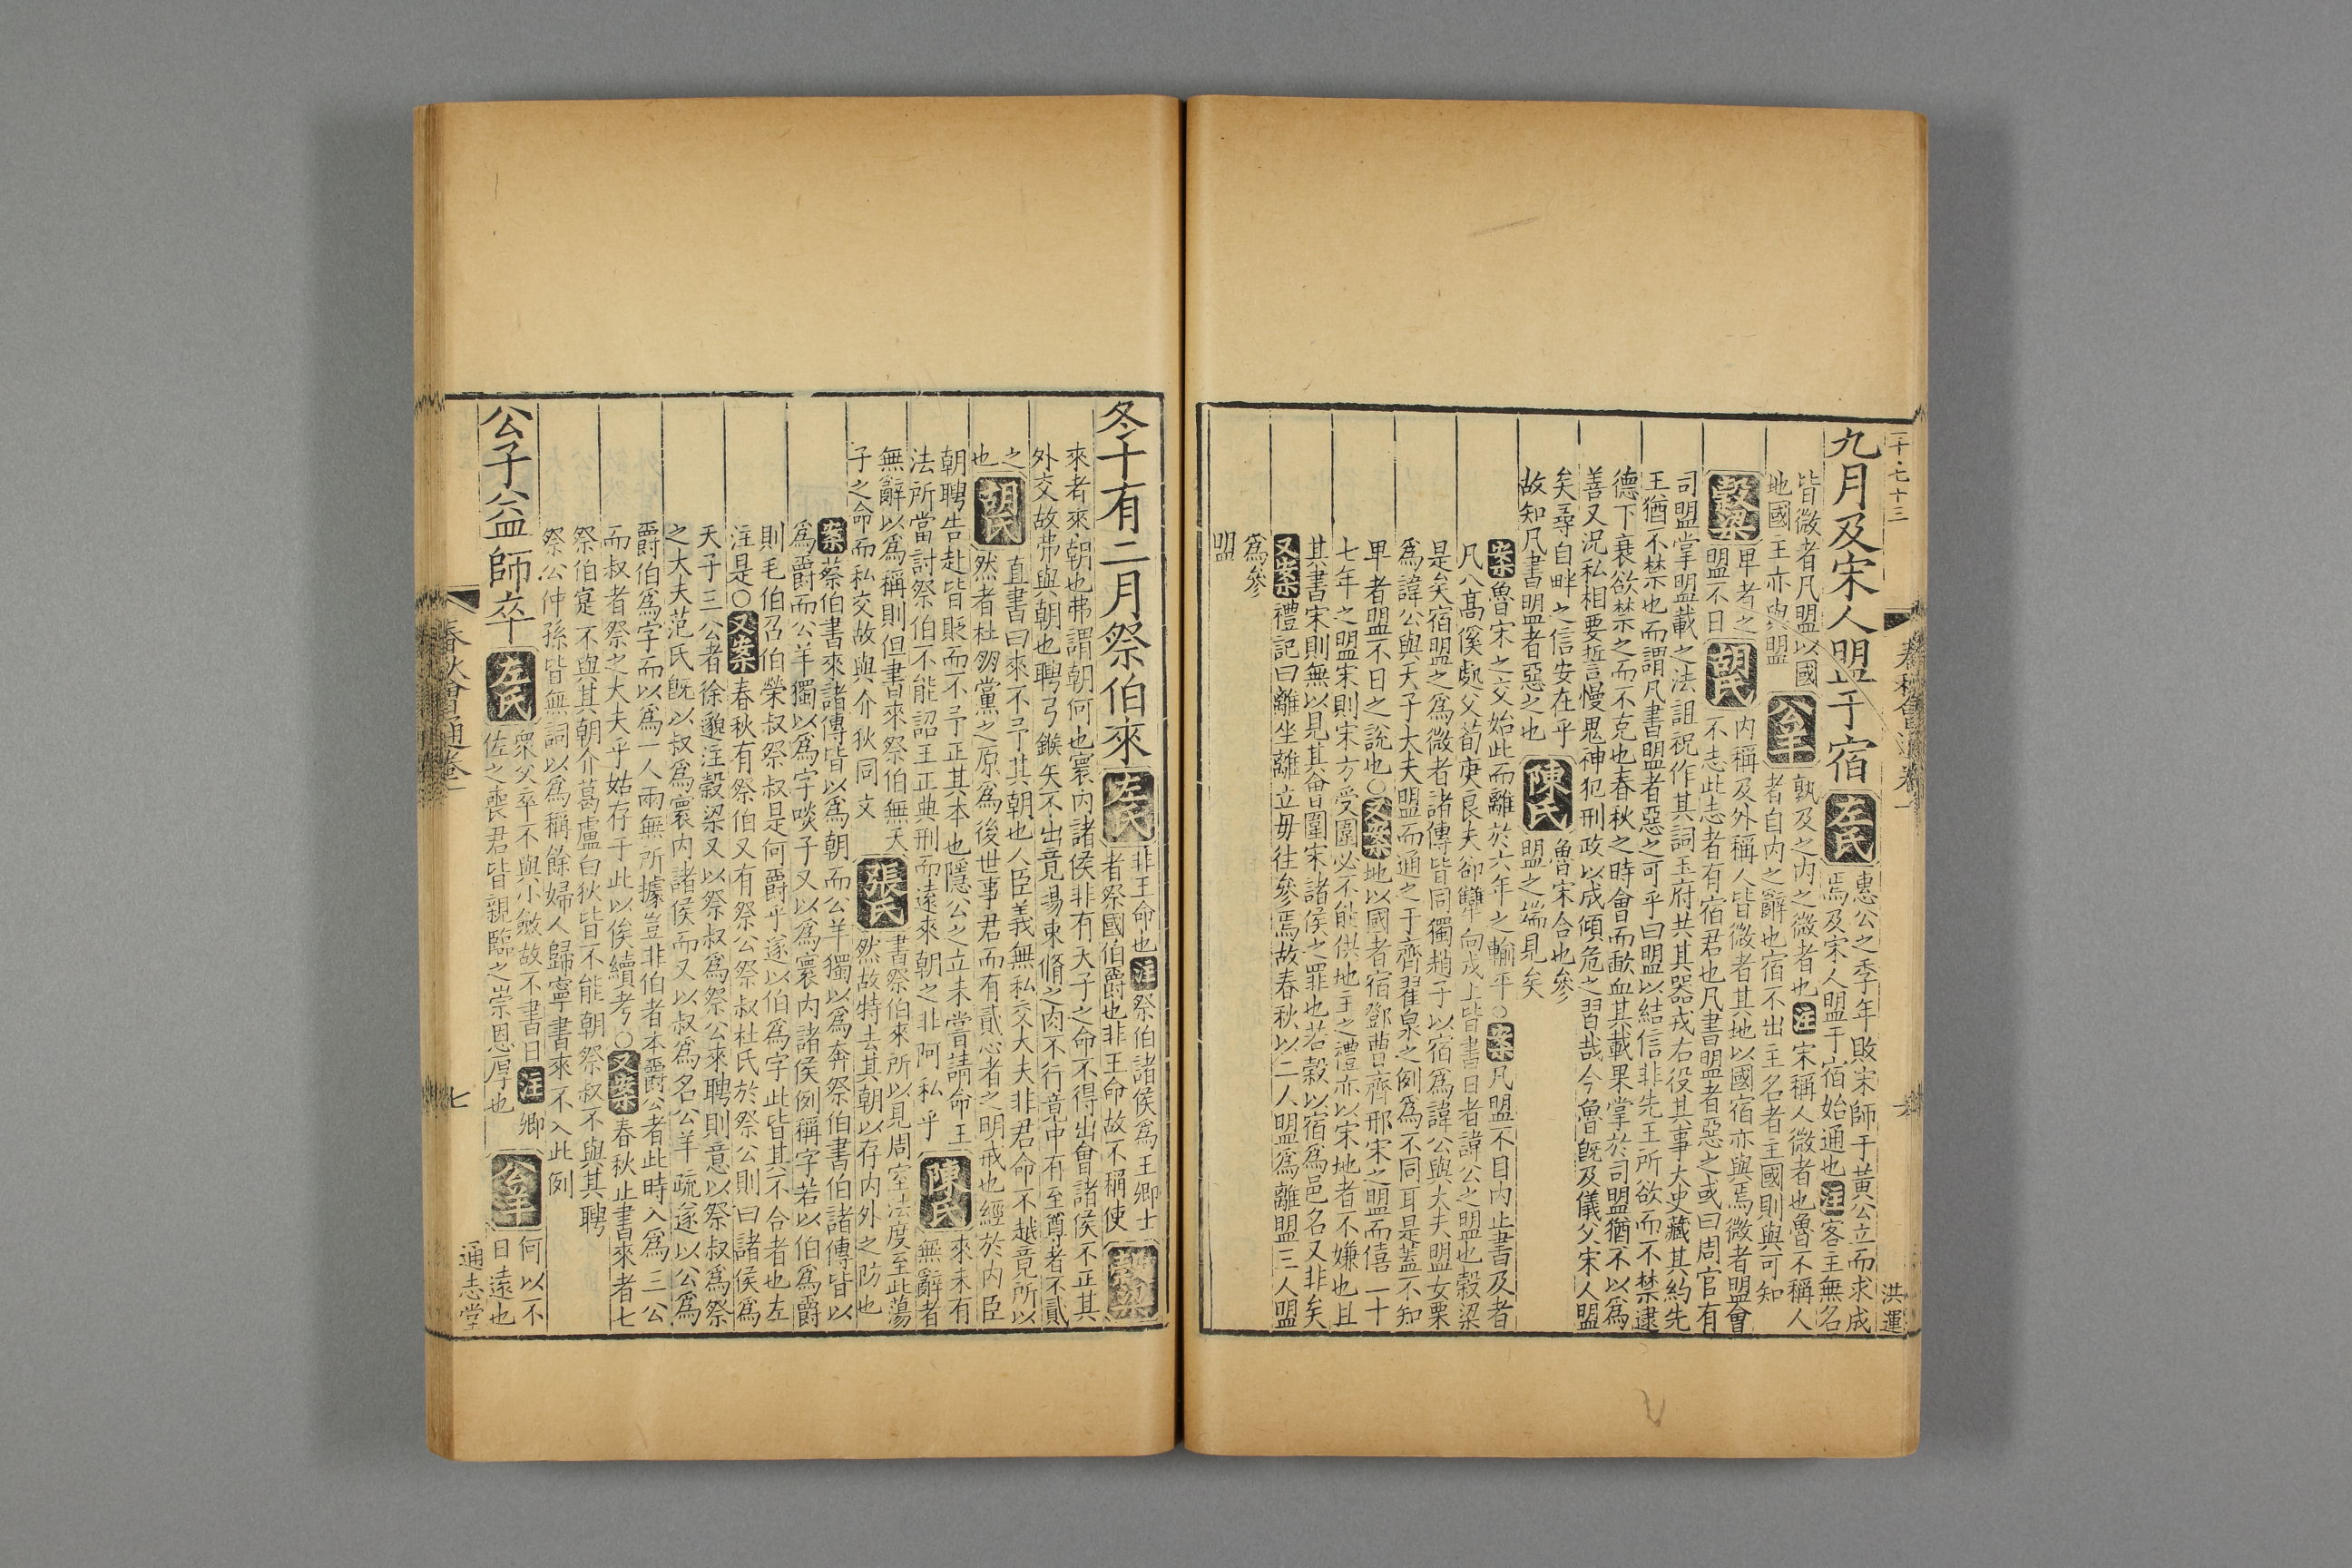 九月及宋人盟于宿 左氏 惠公之季年敗宋師于黃公立而求成
焉及宋人盟于宿始通也 注 客主無名
皆微者凡盟以國 公羊 孰及之內之微者也 注 宋稱人微者也魯不稱人
地國主亦與盟 者自內之辭也宿不出主名者主國則與可知
穀梁 卑者之盟不日 胡氏 內稱及外稱人皆微者其地以國宿亦與焉微者盟會
不志此志者有宿君也凡書盟者惡之或曰周官有
司盟掌盟載之法詛祝作其詞玉府共其器戎右役其事大史藏其約先
王猶不禁也而謂凡書盟者惡之可乎曰盟以結信非先王所欲而不禁逮
德下衰欲禁之而不克也春秋之時會而歃血其載果掌於司盟猶不以為
善又況私相要誓慢鬼神犯刑政以成傾危之習哉今魯既及儀父宋人盟
矣尋自畔之信安在乎
故知凡書盟者惡之也 陳氏 魯宋合也參
盟之端見矣
案 魯宋之交始此而離於六年之輸平○ 案 凡盟不目內止書及者
凡八高傒處父荀庚良夫卻犨向戍上皆書日者諱公之盟也穀梁
是矣宿盟之為微者諸傳皆同獨趙子以宿為諱公與大夫盟女栗
為諱公與天子大夫盟而通之于齊翟泉之例為不同耳是蓋不知
卑者盟不日之說也○ 又案 地以國者宿鄧曹齊邢宋之盟而僖一十
七年之盟宋則宋方受圍必不能供地主之禮亦以宋地者不嫌也且
其書宋則無以見其畣圍宋諸侯之罪也若穀以宿為邑名又非矣
又案 禮記曰離坐離立毋往參焉故春秋以二人盟為離盟三人盟
為參
盟
洪運
冬十有二月祭伯來 左氏 非王命也 注 祭伯諸侯為王卿士
者祭國伯爵也非王命故不稱使 穀梁
來者來朝也弗謂朝何也寰內諸侯非有天子之命不得出會諸侯不正其
外交故弗與朝也聘弓鍭矢不出竟場束脩之肉不行竟中有至尊者不貳
之
也 胡氏 直書曰來不與其朝也人臣義無私交大夫非君命不越竟所以
然者杜朋黨之原為後世事君而有貳心者之明戒也經於內臣
朝聘告赴皆貶而不與正其本也隱公之立未嘗請命王
法所當討祭伯不能詔王正典刑而遠來朝之非阿私乎 陳氏 來未有
無辭者
無辭以為稱則但書來祭伯無天
子之命而私交故與介狄同文 張氏 書祭伯來所以見周室法度至此蕩
然故特去其朝以存內外之防也
案 蔡伯書來諸傳皆以為朝而公羊獨以為奔祭伯書伯諸傳皆以
為爵而公羊獨以為字啖子又以為寰內諸侯例稱字若以伯為爵
則毛伯召伯榮叔祭叔是何爵乎遂以伯為字此皆其不合者也左
注是○ 又案 春秋有祭伯又有祭公祭叔杜氏於祭公則曰諸侯為
天子三公者徐邈注穀梁又以祭叔為祭公來聘則意以祭叔為祭
之大夫范氏既以叔為寰內諸侯而又以叔為名公羊疏遂以公為
爵伯為字而以為一人兩無所據豈非伯者本爵公者此時入為三公
而叔者祭之大夫乎姑存于此以俟續考○ 又案 春秋止書來者七
祭伯寔不與其朝介葛盧白狄皆不能朝祭叔不與其聘
祭公仲孫皆無詞以為稱餘婦人歸寧書來不入此例
公子益師卒 左氏 眾父卒不與小斂故不書日 注 卿
佐之喪君皆親臨之崇恩厚也 公羊 何以不
日遠也
春秋會通卷一
七
通志堂